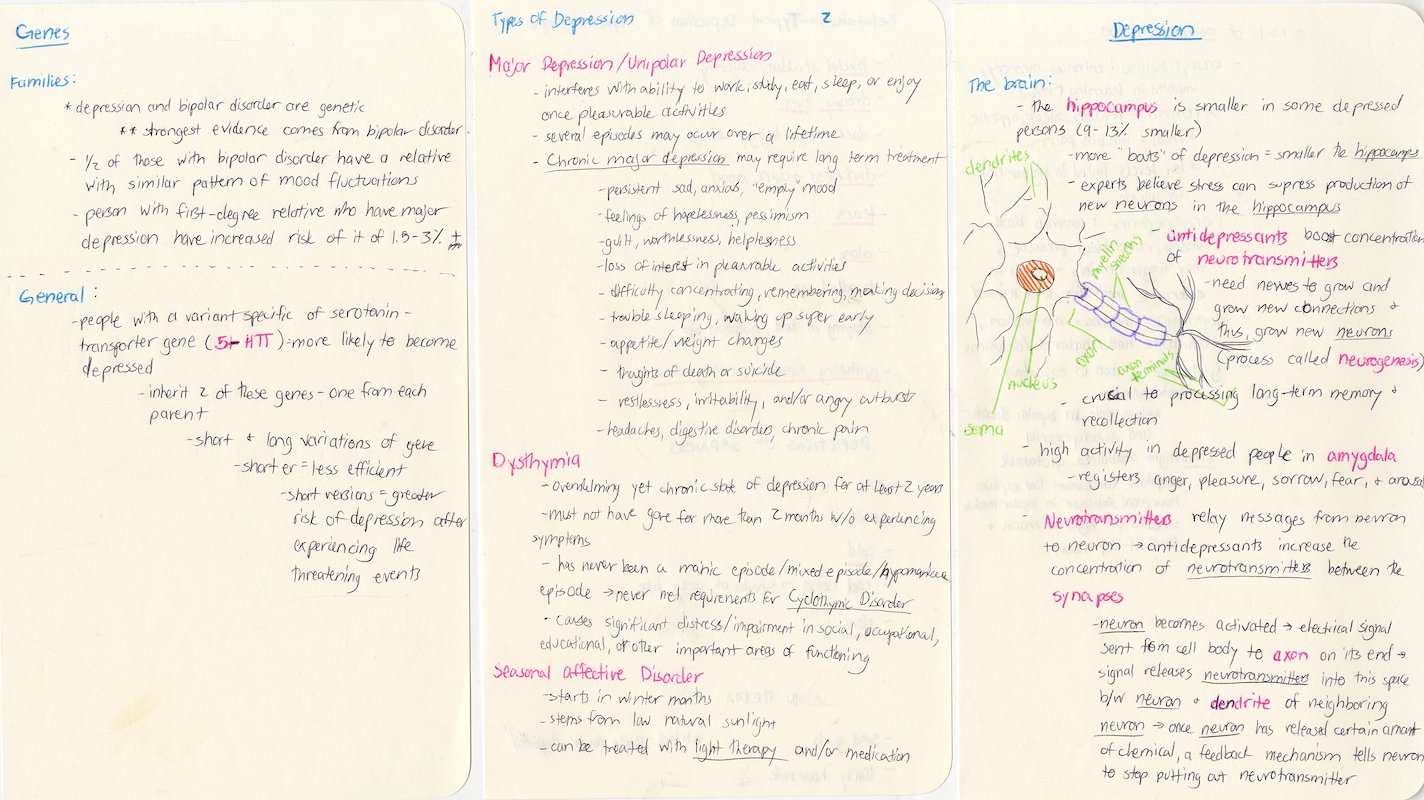 Genes
Families:
* depression and bipolar disorder are genetic
** strongest evidence comes from bipolar disorder.
- 1/2 of those with bipolar disorder have a relative
with similar pattern of mood fluctuations
- person with first-degree relative who have major
depression have increased risk of it of 1.5-3%
General:
- people with a variant specific of serotonin-
transporter gene (5-HTT) = more likely to become
depressed
- inherit 2 of these genes - one from each
parent
- short + long variations of gene
- shorter = less efficient
- short versions = greater
risk of depression after
experiencing life
threatening events
Types of Depression 2
Major Depression/Unipolar Depression
- interferes with ability to work, study, eat, sleep, or enjoy
once pleasurable activities
- several episodes may occur over a lifetime
- Chronic major depression may require long term treatment
- persistent sad, anxious, "empty" mood
- feelings of hopelessness, pessimism
- guilt, worthlessness, helplessness
- loss of interest in pleasurable activities
- difficulty concentrating, remembering, making decisions
- trouble sleeping, waking up super early
- appetite/weight changes
- thoughts of death or suicide
- restlessness, irritability, and/or angry outburst
- headaches, digestive disorders, chronic pain
Dysthymia
- overwhelming yet chronic state of depression for at least 2 years
- must not have gone for more than 2 months w/o experiencing
symptoms
- has never been a manic episode/mixed episode/hypomanic
episode → never met requirements for Cyclothymic Disorder
- causes significant distress/impairment in social, occupational,
educational, or other important areas of functioning
Seasonal Affective Disorder
- starts in winter months
- stems from low natural sunlight
- can be treated with light therapy and/or medication
Depression
The brain:
- the hippocampus is smaller in some depressed
persons (9-13% smaller)
- more "bouts" of depression = smaller the hippocampus
- experts believe stress can supress production of
new neurons in the hippocampus
- antidepressants boost concentration
of neurotransmitters
- need nerves to grow and
grow new connections +
thus, grow new neurons
(process called neurogenesis)
- crucial to processing long-term memory +
recollection
dendrites
myelin
sheath
axon
axon
terminals
nucleus
soma
- high activity in depressed people in amygdala
- registers anger, pleasure, sorrow, fear, + arousal
- Neurotransmitters relay messages from neuron
to neuron → antidepressants increase the
concentration of neurotransmitters between the
synapses
- neuron becomes activated → electrical signal
sent from cell body to axon on its end →
signal releases neurotransmitters into this space
b/w neuron + dendrite of neighboring
neuron → once neuron has released certain amount
of chemical, a feedback mechanism tells neuron
to stop putting out neurotransmitter